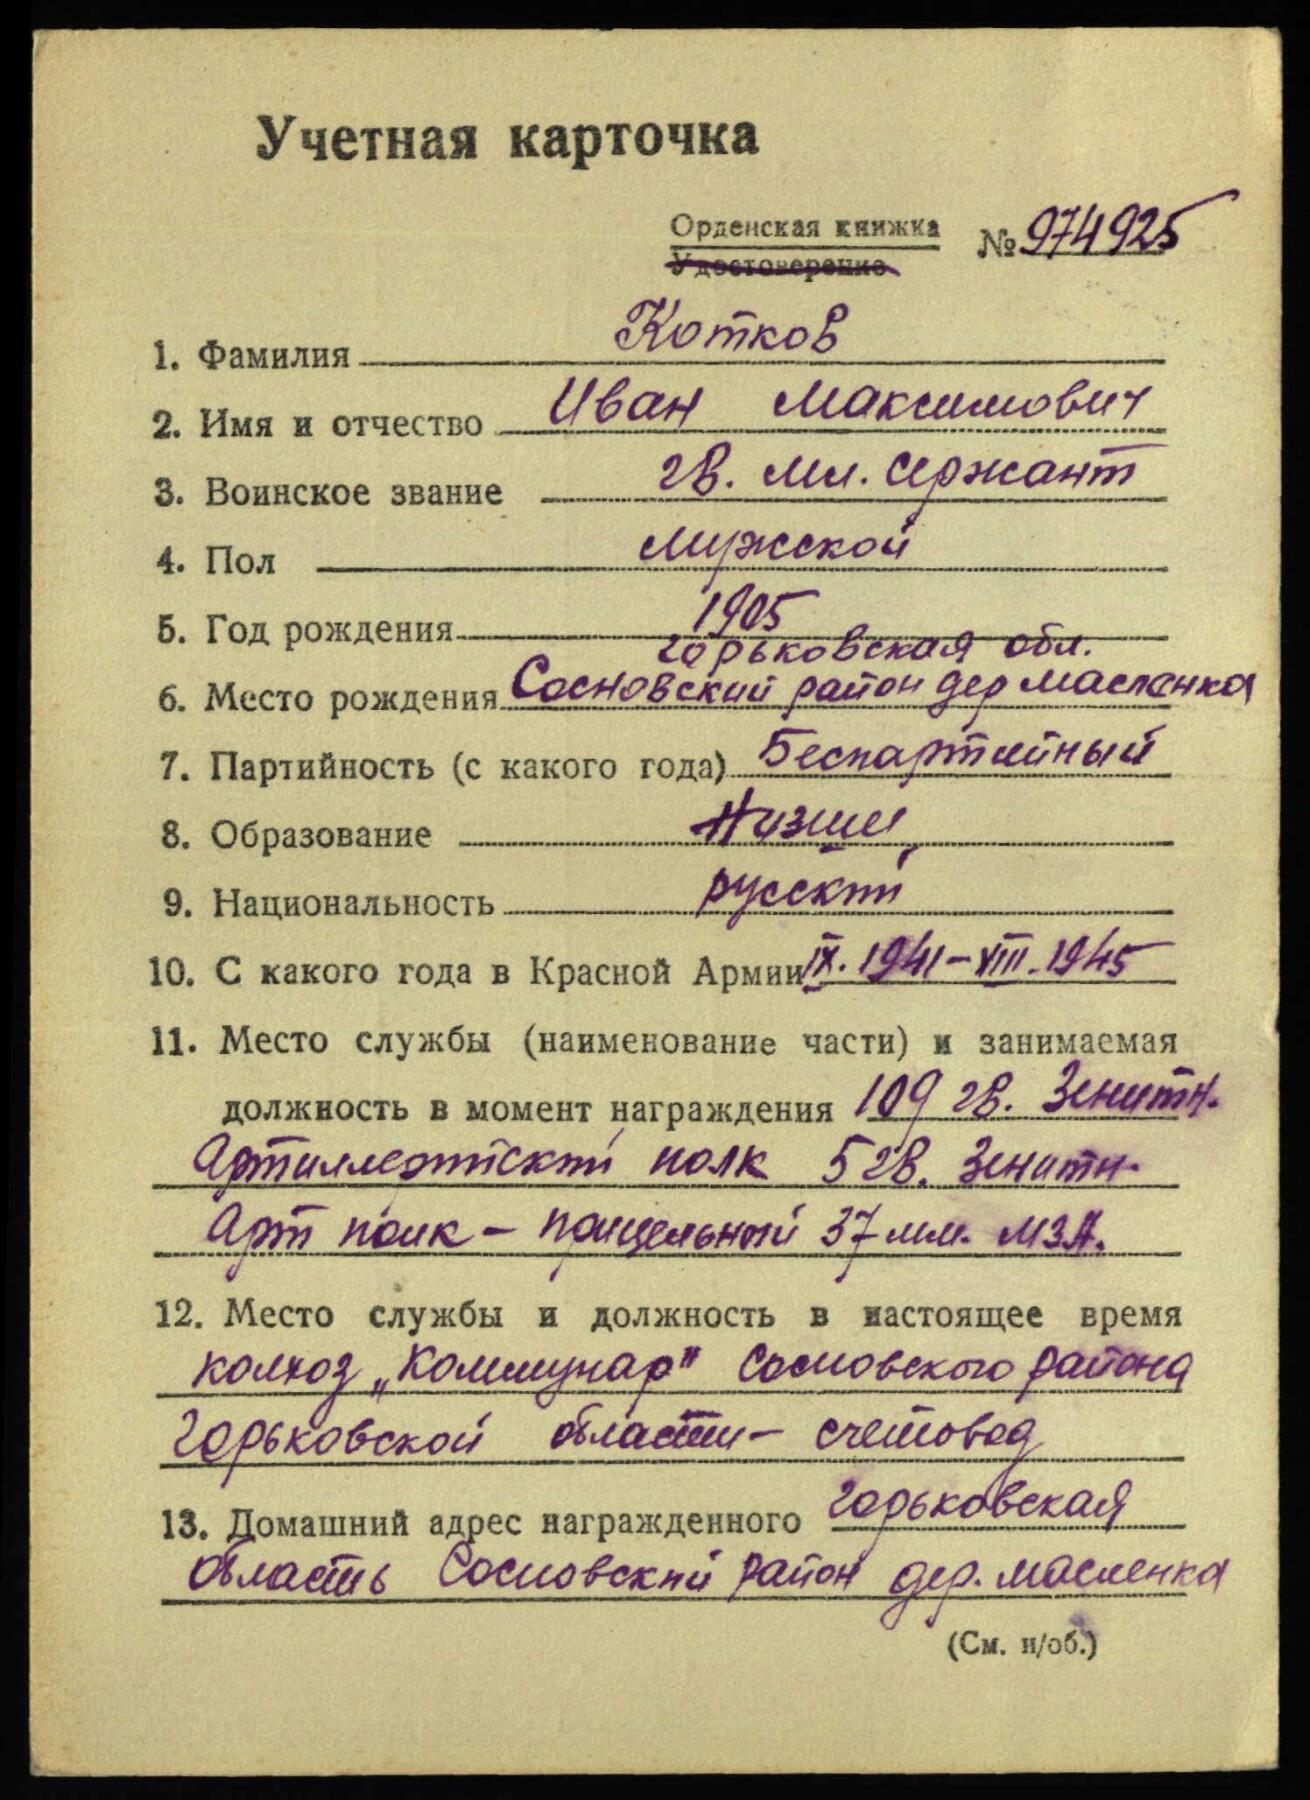 Учетная карточка
Орденская книжка № 974925
Удостоверение
Котков
1. Фамилия
2. Имя и отчество Иван Максимович
3. Воинское звание гв. мл. сержант
4. Пол мужской
5. Год рождения 1905
Горьковская обл.
6. Место рождения Сосновский район дер Масленка
7. Партийность (с какого года) Беспартийный
8. Образование Низшее
9. Национальность русский
10. С какого года в Красной Армии IX. 1941 – VIII. 1945
11. Место службы (наименование части) и занимаемая
должность в момент награждения 109 гв. Зенитн.
Артиллерийский полк 5 гв. Зенитн.
Арт полк – прицельный 37 мм. МЗА.
12. Место службы и должность в настоящее время
колхоз „Коммунар" Сосновского района
Горьковской области – счетовод
13. Домашний адрес награжденного Горьковская
область Сосновский район дер. Масленка
(См. н/об.)